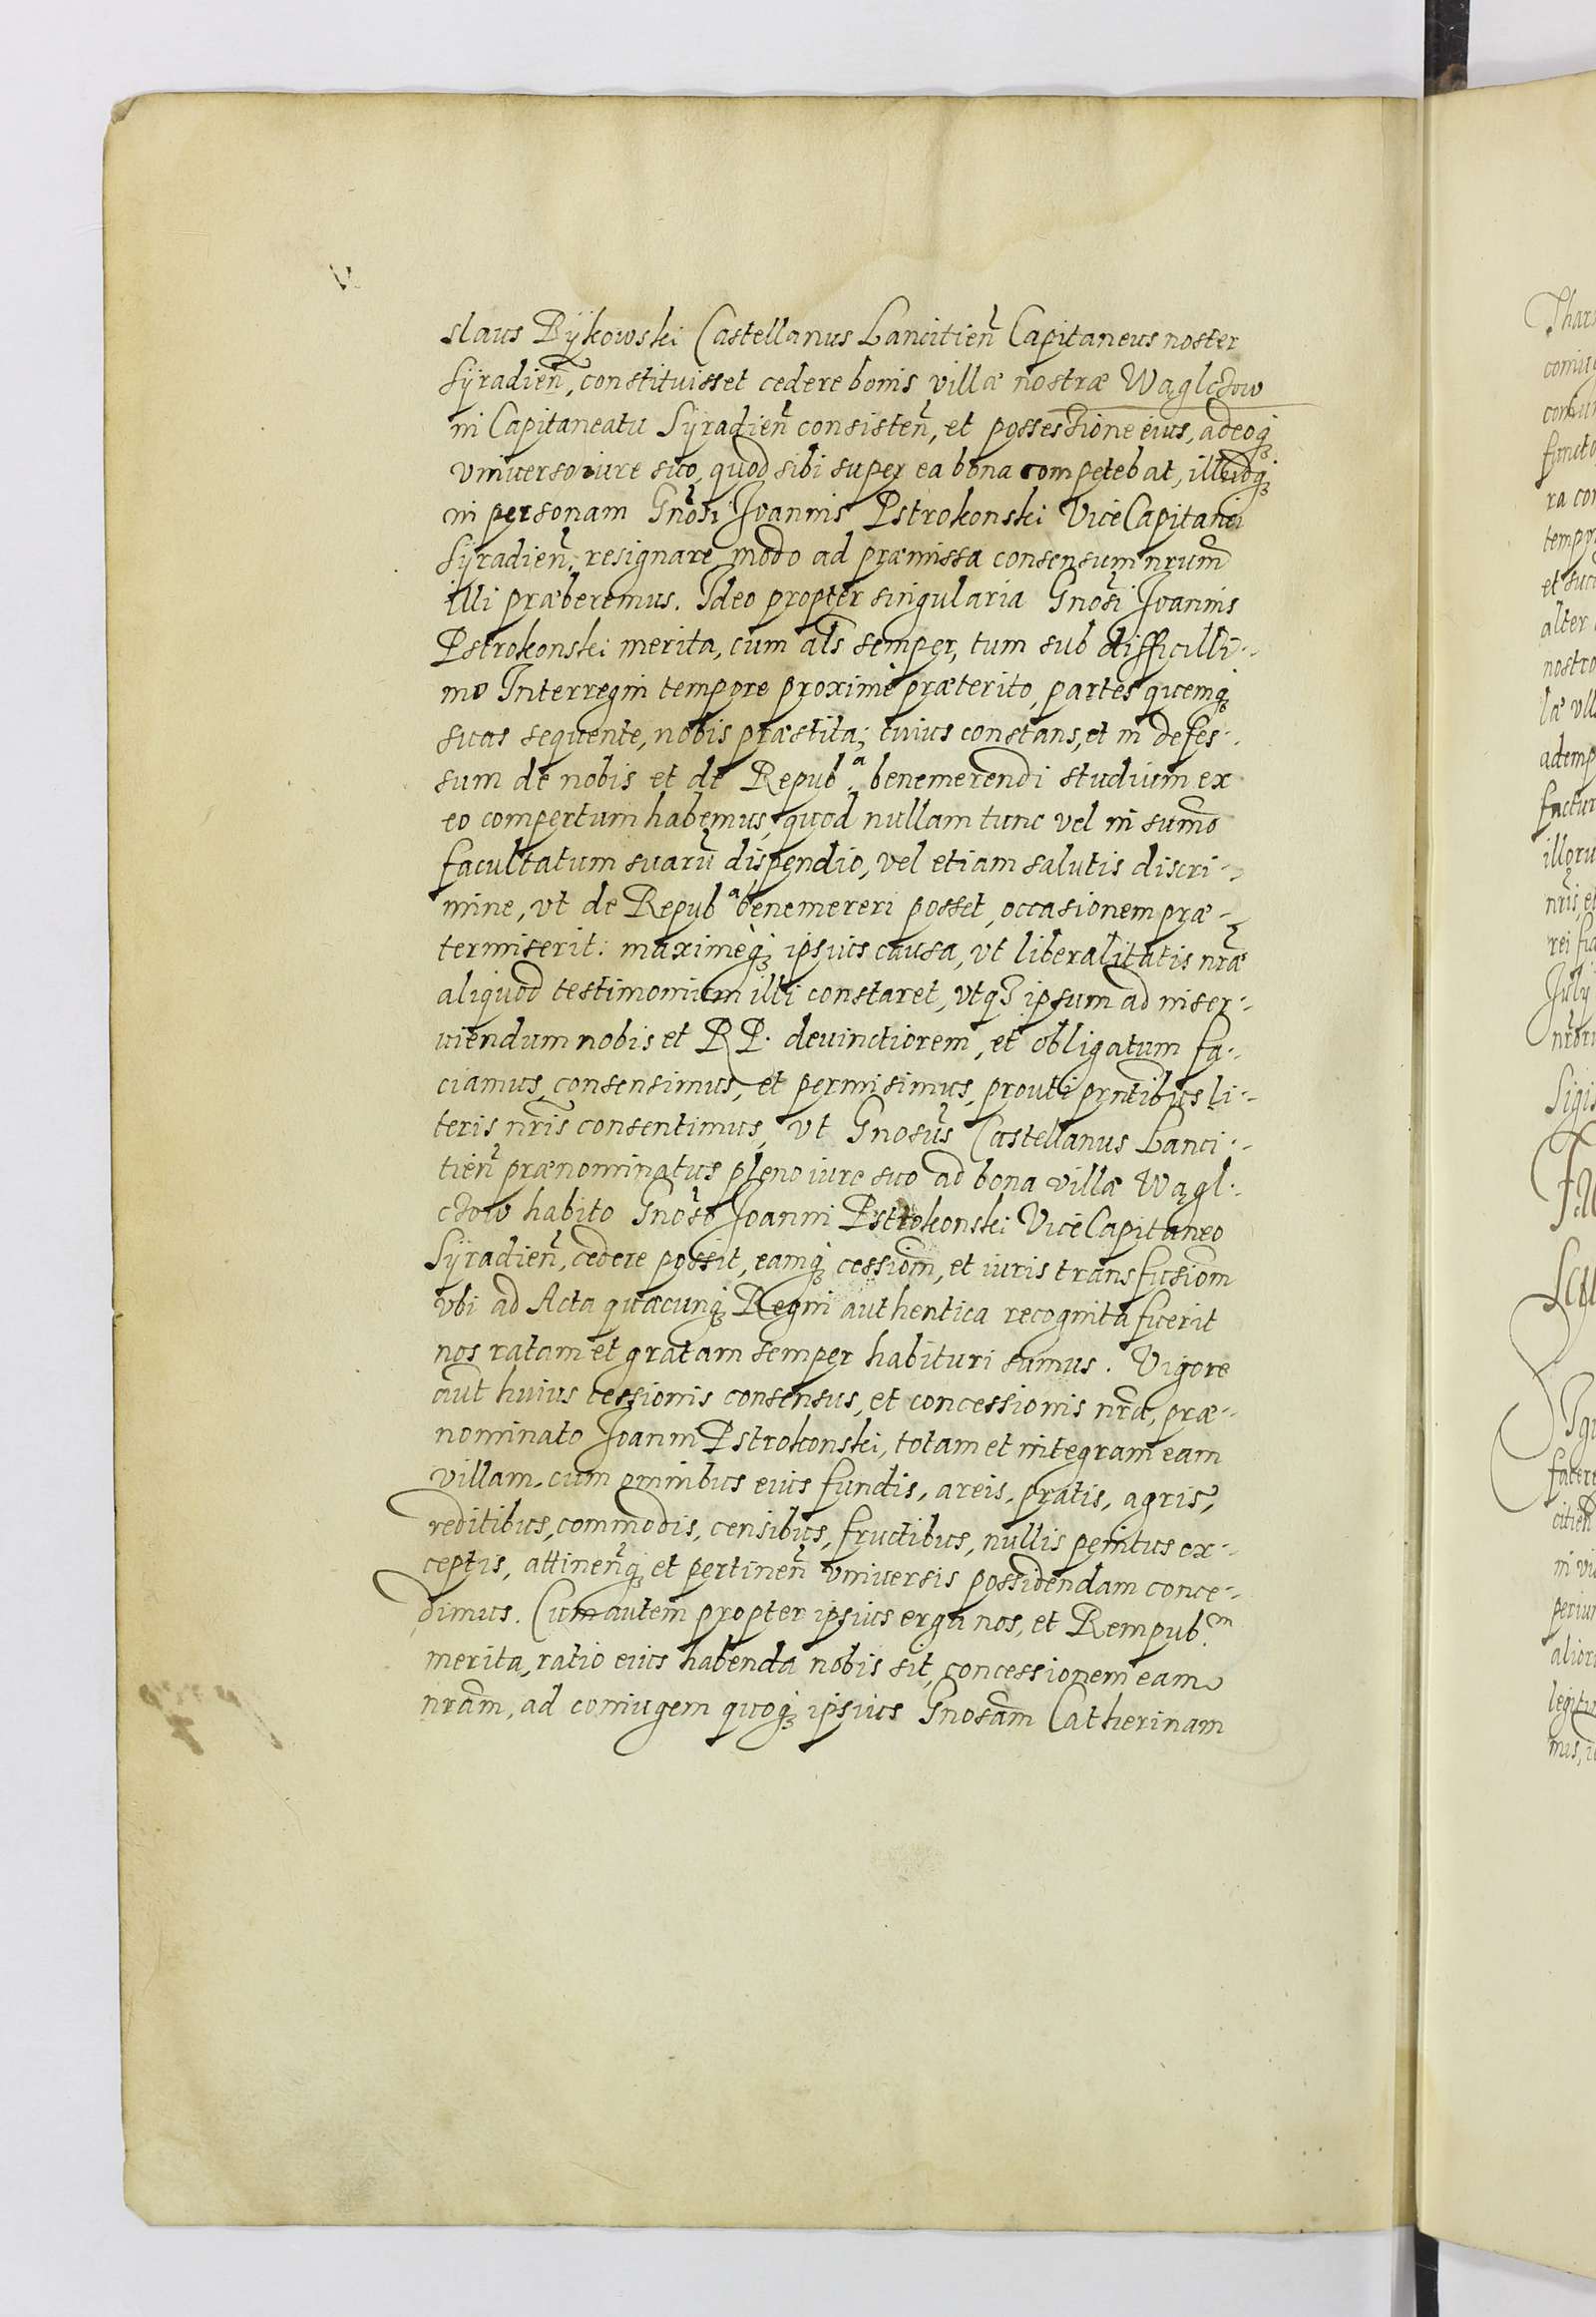 slaus Bÿkowski Castellanus Lancitień Capitaneus noster
Sÿradień, constituisset cedere bonis villæ nostræ Wąglczow
in Capitaneatu Sÿradień consisteń, et possessione eius, adeoq́
vniuerso iure suo, quod sibi super ea bona competebat, illudq́
in personam Gnōsi Joannis Pstrokonski Vice Capitanei
Sÿradień. resignare, modo ad præmissa consensum nrum̄
illi præberemus. Ideo propter singularia Gnōsi Joannis
Pstrokonski merita, cum als̄ semper, tum sub difficilli-
mo Interregni tempore proximè præterito, partes quemq́
suas sequente, nobis præstita; cuius constans, et in defes-
sum de nobis et de Repub.ᵃ benemerendi studium ex
eo compertum habemus, quod nullam tunc vel in sum̄o
facultatum suarū dispendio, vel etiam salutis discri-
mine, vt de Repubᵃ benemereri posset, occasionem præ-
termiserit: maximèq́ ipsius causa, vt liberalitatis nr̄æ
aliquod testimonium illi constaret, vtq3 ipsum ad inser-
uiendum nobis et RP. deuinctiorem, et obligatum fa-
ciamus, consensimus, et permisimus, prouti pn̄tibus li-
teris nr̄is consentimus, vt Gnosūs Castellanus Lanci-
tień prænominatus pleno iure suo ad bona villæ Wągl-
czow habito Gnōso Joanni Pstrokonski Vice Capitaneo
Sÿradień, cedere possit, eamq́ cessiom̄, et iuris transfusiom̄
vbi ad Acta quæcunq́ Regni authentica recognita fuerit
nos ratam et gratam semper habituri sumus. Vigore
aūt huius cessionis consensus, et concessionis nr̄æ, præ-
nominato Joanni Pstrokonski, totam et integram eam
villam, cum omnibus eius fundis, areis, pratis, agris,
reditibus, commodis, censibus, fructibus, nullis penitus ex-
ceptis, attineńq́ et pertineń vniuersis possidendam conce-
dimus. Cum autem propter ipsius erga nos, et Rempub.ᵐ
merita, ratio eius habenda nobis sit, concessionem eam
nram̄, ad coniugem quoq́ ipsius Gnosam̄ Catherinam